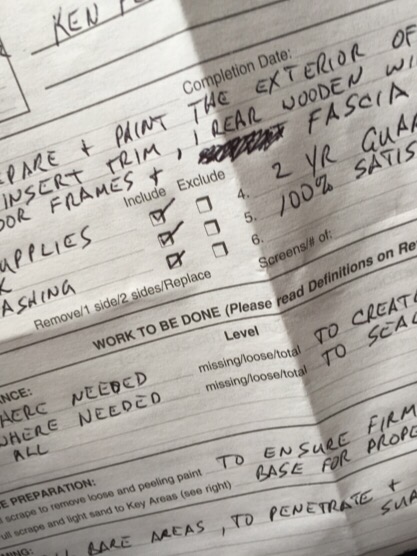 KEN
Completion Date:
PARE + PAINT THE EXTERIOR OF
INSERT TRIM, 1 REAR WOODEN WI
OOR FRAMES + FASCIA
Include Exclude
4. 2 YR GUAR
UPPLIES 5. 100% SATIS
6.
ASHING Screens/# of:
Remove/1 side/2 sides/Replace
WORK TO BE DONE (Please read Definitions on Re
Level
NCE: missing/loose/total TO CREATE
HERE NEEDED missing/loose/total TO SEAL
WHERE NEEDED
ALL
E PREPARATION:
scrape to remove loose and peeling paint TO ENSURE FIRM
ull scrape and light sand to Key Areas (see right) BASE FOR PROPE
NING:
BARE AREAS, TO PENETRATE +